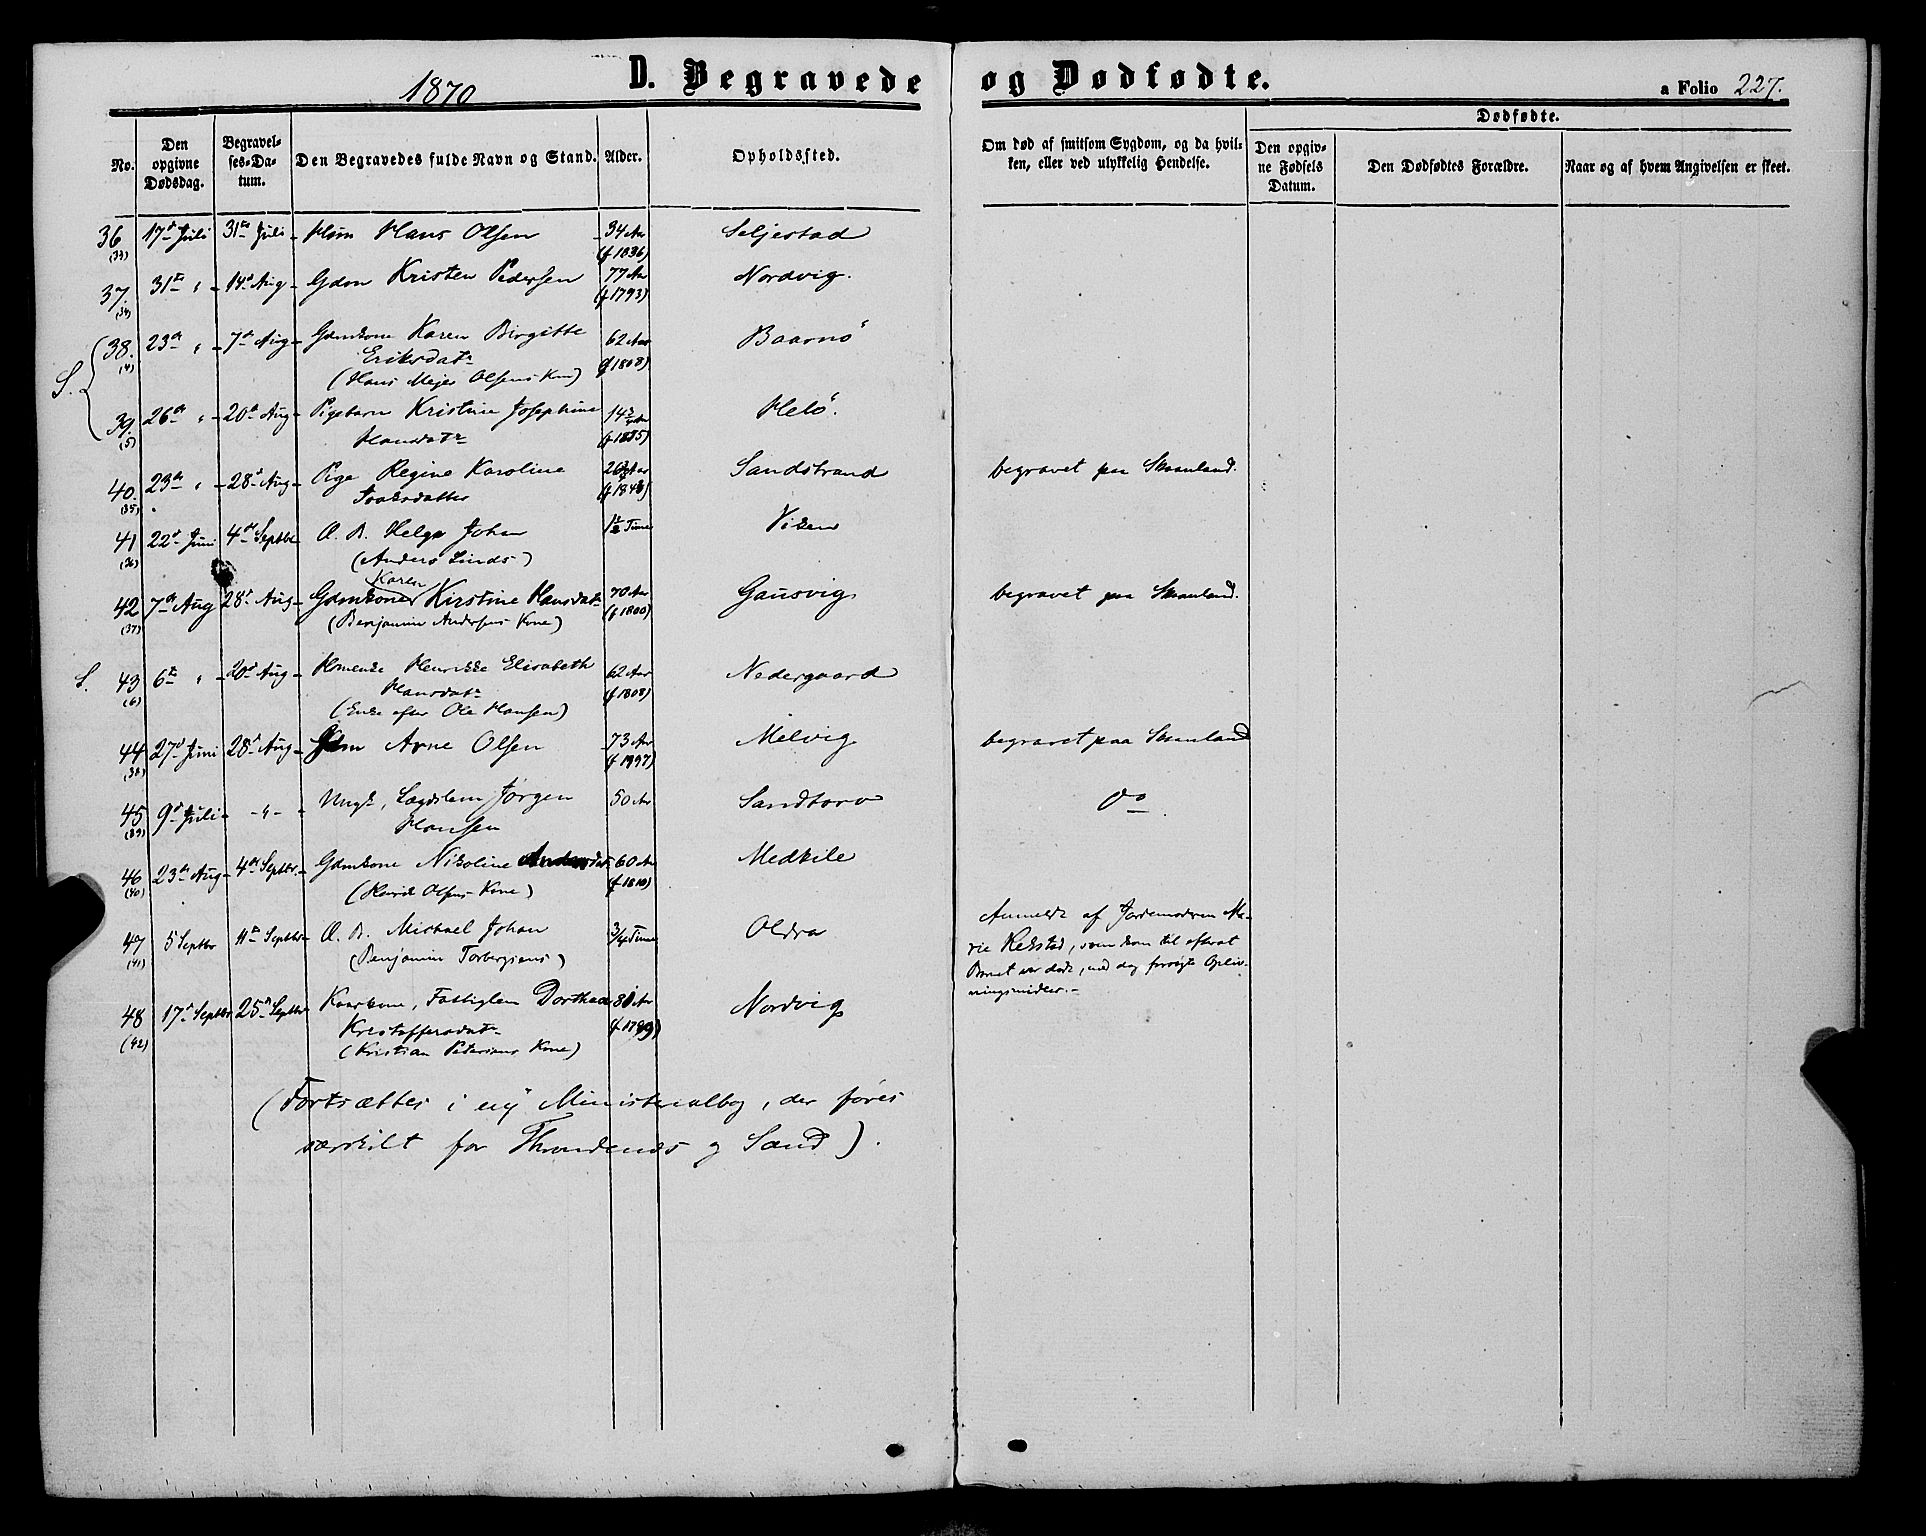 1870
D. Begravede og Dødfødte.
a Folio 227.
No.
Den opgivne Dødsdag.
Begravelses-Datum.
Den Begravedes fulde Navn og Stand.
Alder.
Opholdssted.
Om død af smitsom Sygdom, og da hvilken, eller ved ulykkelig Hendelse.
Dødfødte.
Den opgivne Fødsels Datum.
Den Dødfødtes Forældre.
Naar og af hvem Angivelsen er skeet.
36 17de Juli 31te Juli Hans Olsen 34 Aar Seljestad
(33) (f 1836)
37. 31te " 14de Aug Gdm Kristen Pedersen 77 Aar Nordvig.
(34) (f 1793)
S. 38. 23de " 7de Aug Gdmkone Karen Birgitte 62 Aar Baarnö
(4) Eriksdatr (f 1808)
(Hans Mejer Olsens Kone)
39. 26de " 20de Aug Pigebarn Kristine Josephine 14 Aar Helö.
(5) Hansdatr
40. 23de " 28de Aug Pige Regine Karoline Sandstrand begravet paa Skaanland.
(35) Isaksdatter
41 22de Juni 4de Septbr Æ. B. Helge Johan 1½ Time Viken
(36) (Anders Linds)
Karen
42 7de Aug 28de Aug Gdmkone Kirstine Hansdatr 70 Aar Gausvig begravet paa Skaanland.
(37) (Benjamin Andersens Kone) (f 1800)
S. 43 6te " 20de Aug Henrikke Elisabeth 62 Aar Nedergaard
(6) Hansdatr (f 1808)
(Enke efter Ole Hansen)
44 27de Juni 28de Aug Arne Olsen 73 Aar Melvig begravet paa Skaanland
(38) (f 1797)
45 9de Juli " Ungk, Lægdslem Jörgen 50 Aar Sandtorv Do
(39) Hansen
46 23de Aug 4de Septbr. Gdmkone Nikoline Andersdatr 60 Aar Medkile
(40) (Olsens Kone) (f 1810)
47 5 Septbr 11te Septbr Æ. B. Michael Johan 3/4 Time Oldra Anmeldt af Jordemoderen Ma-
(41) (Benjamin Torbergsens) rie Rekstad, som kom til efterat
Barnet var dødt, men dog forsögte Opliv-
ningsmidler.
48 17de Septbr 25de Septbr Kaarkone, Fattiglem Dorthea 81 Aar Nordvig
(42) Kristoffersdatr
(Kristian Pedersens Kone)
(Fortsættes i ny Ministerialbog, der föres
særskilt for Throndenæs og Sand).